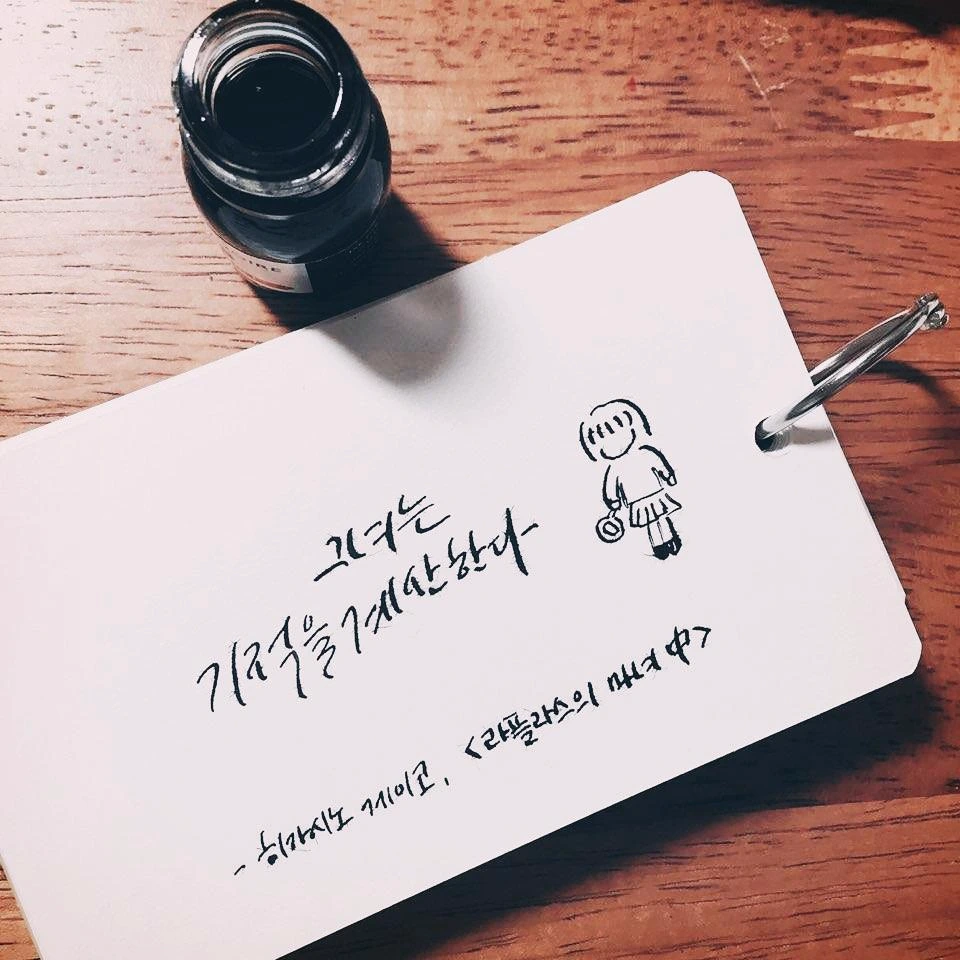 그녀는
기적을 계산한다
- 히가시노 게이고, <라플라스의 마녀 中>